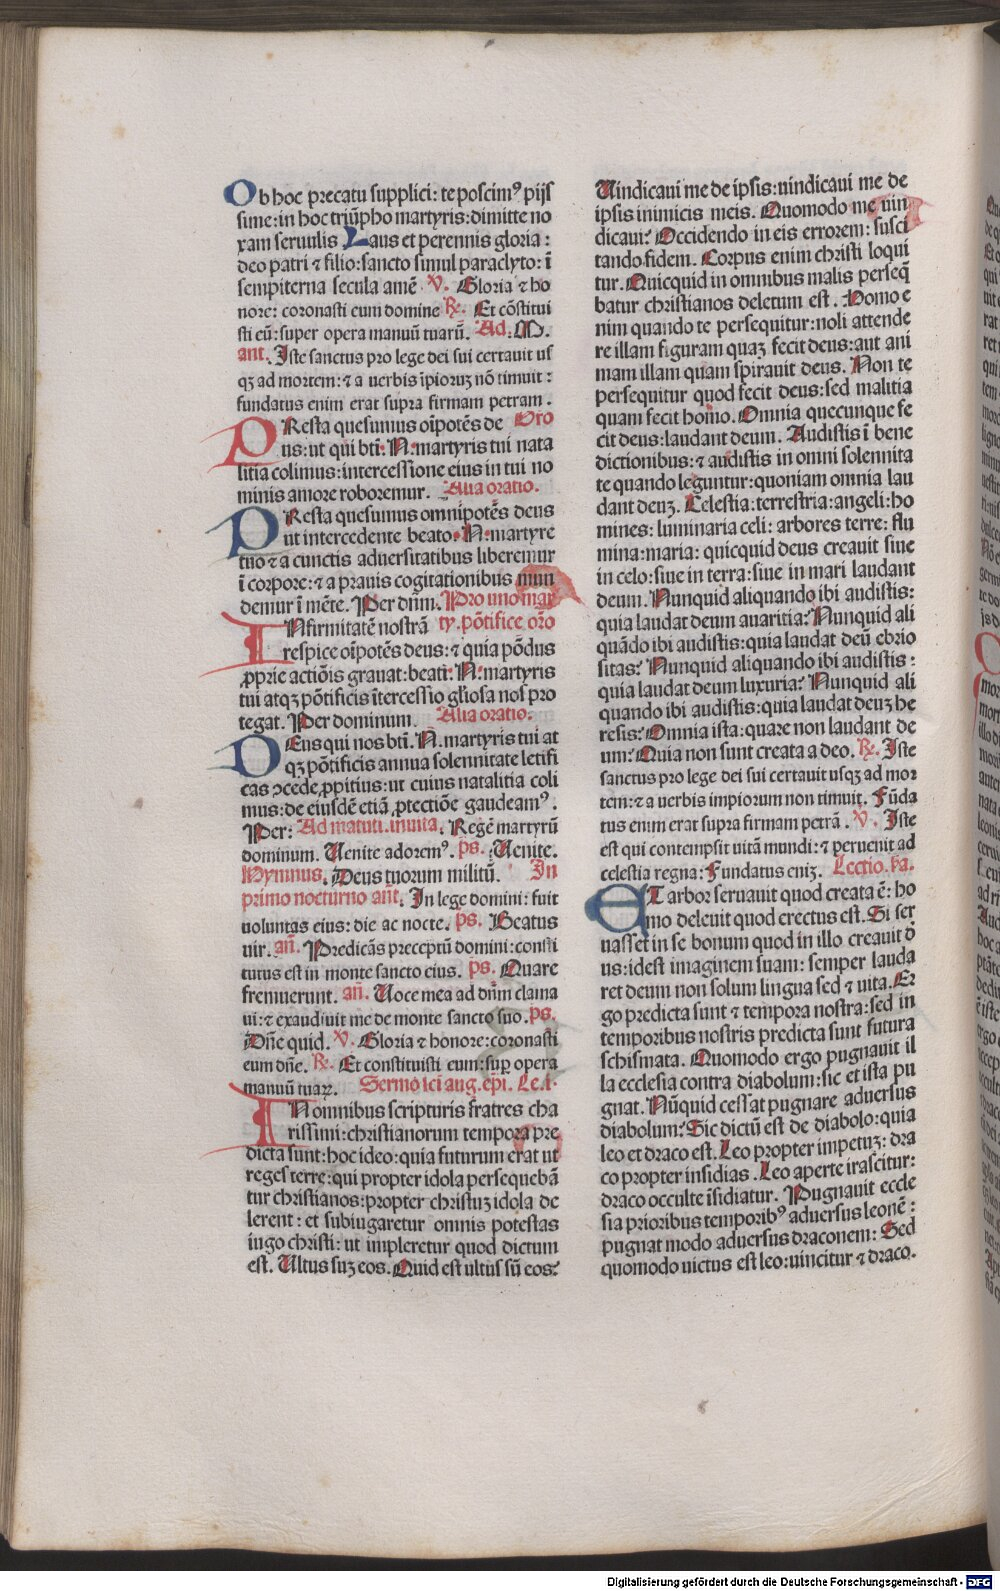 Ob hoc precatu supplici: te poscimꝰ pijs
sime: in hoc triūpho martyris: dimitte no
xam seruulis Laus et perennis gloria:
deo patri ⁊ filio: sancto simul paraclyto: ī
sempiterna secula amē ℣. Gloria ⁊ ho
nore: coronasti eum domine ℞. Et cōstitui
sti eū: super opera manuū tuarū. Ad. M.
ant. Iste sanctus pro lege dei sui certauit us
qꝫ ad mortem: ⁊ a uerbis īpioruꝫ nō timuit:
fundatus enim erat supra firmam petram.
PResta quesumus oīpotēs de Oro
us: ut qui btī. N. martyris tui nata
litia colimus: intercessione eius in tui no
minis amore roboremur. Alia oratio.
PResta quesumus omnipotēs deus
ut intercedente beato. N. martyre
tuo ⁊ a cunctis aduersitatibus liberemur
ī corpore: ⁊ a prauis cogitationibus mun
demur ī mēte. Per dn̄m. Pro uno mar
INfirmitatē nostrā ty. pōtifice, or̄o
respice oīpotēs deus: ⁊ quia pōdus
ꝓprie actiōis grauat: beati. N. martyris
tui atqꝫ pōtificis ītercessio gl̄iosa nos pro
tegat. Per dominum. Alia oratio.
DEus qui nos btī. N. martyris tui at
qꝫ pōtificis annua solennitate letifi
cas ↄcede ꝓpitius: ut cuius natalitia coli
mus: de eiusdē etiā ꝓtectiōe gaudeamꝰ.
Per: Ad matuti. inuita. Regē martyrū
dominum. Uenite adoremꝰ. ps. Uenite.
Hymnus. Deus tuorum militū. In
primo nocturno an̄t. In lege domini: fuit
uoluntas eius: die ac nocte. ps. Beatus
uir. an̄. Predicās preceptū domini: consti
tutus est in monte sancto eius. ps. Quare
fremuerunt. an̄. Uoce mea ad dn̄m clama
ui: ⁊ exaudiuit me de monte sancto suo. ps.
Dn̄e quid. ℣. Gloria ⁊ honore: coronasti
eum dn̄e. ℞. Et constituisti eum: suꝑ opera
manuū tuaꝝ. Sermo sci aug. ep̄i. Le. i.
IN omnibus scripturis fratres cha
rissimi: christianorum tempora pre
dicta sunt: hoc ideo: quia futurum erat ut
reges terre: qui propter idola persequebā
tur christianos: propter christuꝫ idola de
lerent: et subiugaretur omnis potestas
iugo christi: ut impleretur quod dictum
est. Ultus suꝫ eos. Quid est ultus sū eos?
Uindicaui me de ipsis: uindicaui me de
ipsis inimicis meis. Quomodo me uin
dicaui? Occidendo in eis errorem: susci
tando fidem. Corpus enim christi loqui
tur. Quicquid in omnibus malis perseq̄
batur christianos deletum est. Homo e
nim quando te persequitur: noli attende
re illam figuram quaꝫ fecit deus: aut ani
mam illam quam spirauit deus. Non te
persequitur quod fecit deus: sed malitia
quam fecit homo. Omnia quecunque fe
cit deus: laudant deum. Audistis ī bene
dictionibus: ⁊ audistis in omni solennita
te quando leguntur: quoniam omnia lau
dant deuꝫ. Celestia: terrestria: angeli: ho
mines: luminaria celi: arbores terre: flu
mina: maria: quicquid deus creauit siue
in celo: siue in terra: siue in mari laudant
deum. Nunquid aliquando ibi audistis:
quia laudat deum auaritia? Nunquid ali
quādo ibi audistis: quia laudat deū ebrio
sitas? Nunquid aliquando ibi audistis:
quia laudat deum luxuria? Nunquid ali
quando ibi audistis: quia laudat deuꝫ he
resis? Omnia ista: quare non laudant de
um? Quia non sunt creata a deo. ℞. Iste
sanctus pro lege dei sui certauit usqꝫ ad mor
tem: ⁊ a uerbis impiorum non timuit. Fūda
tus enim erat supra firmam petrā. ℣. Iste
est qui contempsit uitā mundi: ⁊ peruenit ad
celestia regna: Fundatus eniꝫ. Lectio. ij̄a.
ET arbor seruauit quod creata ē: ho
mo deleuit quod erectus est. Si ser
uasset in se bonum quod in illo creauit d̄
us: idest imaginem suam: semper lauda
ret deum non solum lingua sed ⁊ uita. Er
go predicta sunt ⁊ tempora nostra: sed in
temporibus nostris predicta sunt futura
schismata. Quomodo ergo pugnauit il
la ecclesia contra diabolum: sic et ista pu
gnat. Nūquid cessat pugnare aduersus
diabolum? Sic dictū est de diabolo: quia
leo et draco est. Leo propter impetuꝫ: dra
co propter insidias. Leo aperte irascitur:
draco occulte īsidiatur. Pugnauit eccle
sia prioribus temporibꝰ aduersus leonē:
pugnat modo aduersus draconem: Sed
quomodo uictus est leo: uincitur ⁊ draco.
Digitalisierung gefördert durch die Deutsche Forschungsgemeinschaft - DFG